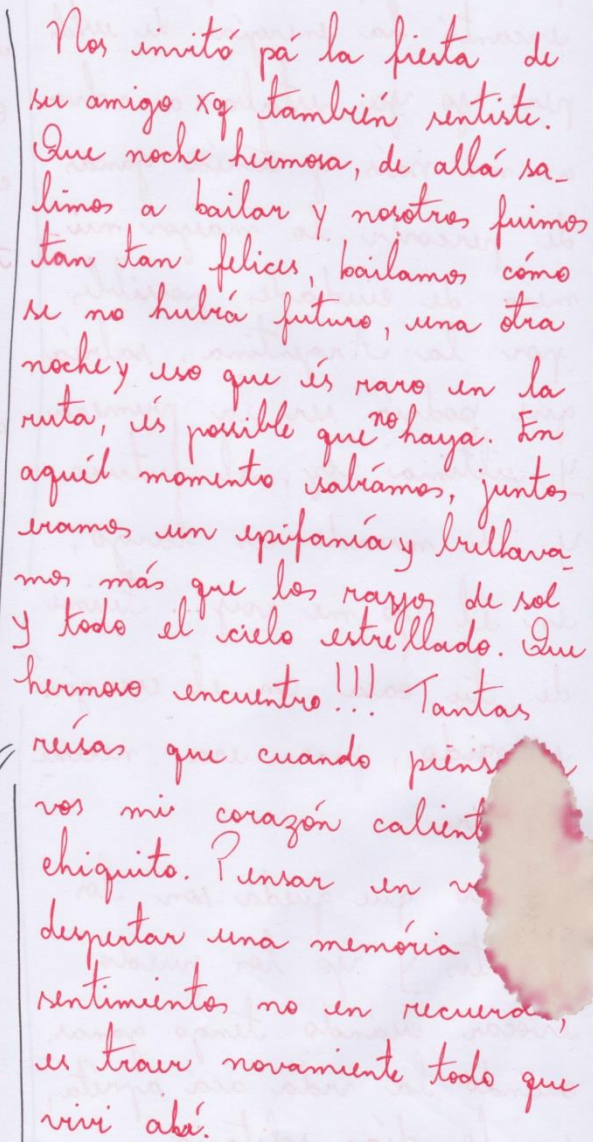 Nos invitó pá la fiesta de
su amigo xq también sentiste.
Que noche hermosa, de allá sa-
limos a bailar y nosotros fuimos
tan tan felices, bailamos cómo
se no hubiá futuro, una otra
noche y eso que és raro en la
ruta, és possible que no haya. En
aquél momento sabiamos, juntos
eramos un epifanía y brillava-
mos más que los rayjos de sol
y todo el cielo estrellado. Que
hermoso encuentro!!! Tantas
reisas que cuando
vos mi corazón
chiquito. Pensar en
despertar una memória
sentimientos no en
es traer novamiente todo que
vivi